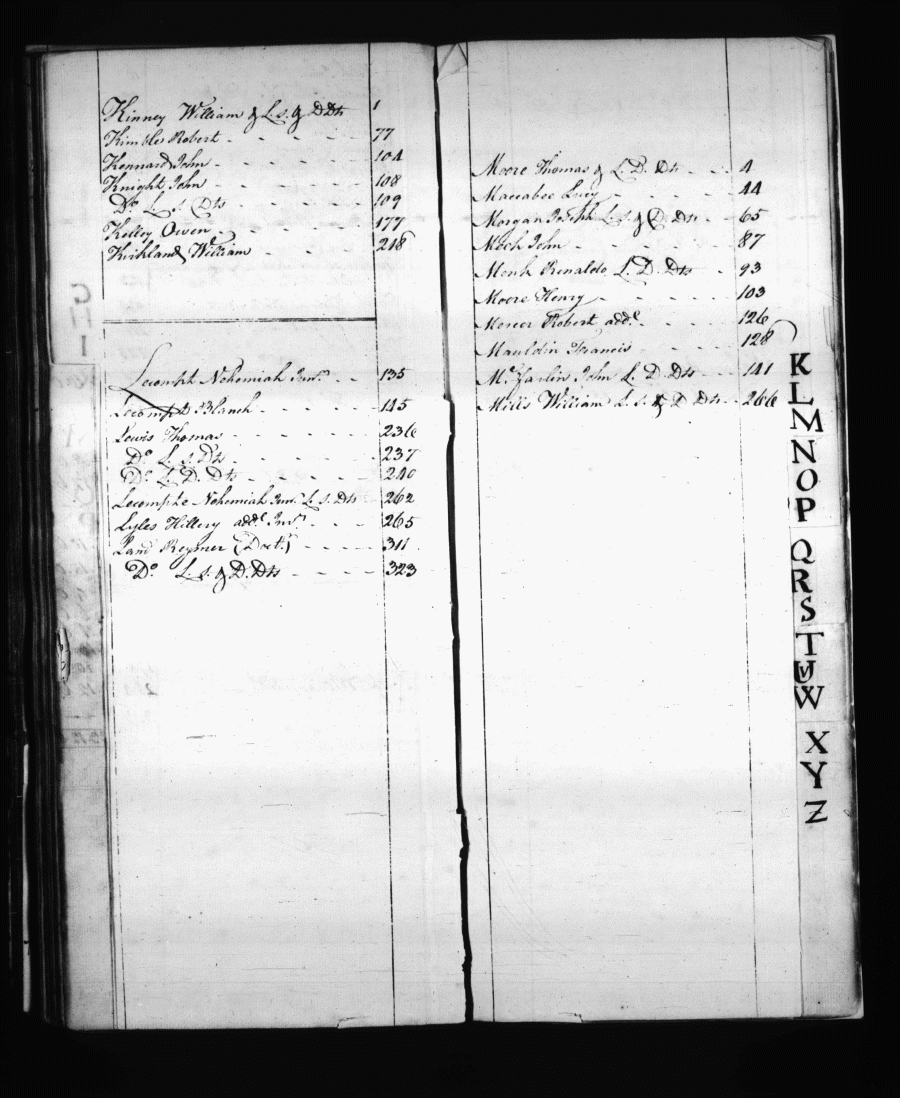 Kinney William & L. S. & D Dts 1
Kimble Robert 77
Kennard John 104
Knight John 108
Do L. S. Dts 109
Kelley Owen 177
Kirkland William 218
Lecompt Nehemiah Inv.y 135
Lecompt Blanch 145
Lewis Thomas 236
Do L. S. Dts 237
Do L. D. Dts 240
Lecompte Nehemiah Inv.y L. S. Dts 262
Lyles Hillery add.l Inv.y 265
Land Reymer (Doct.r) 311
Do L. S. & D. Dts 323
Moore Thomas & L. D. Dts 4
Maccabee Lucy 44
Morgan L. S. & D Dts 65
John 87
Monk Renaldo L. D. Dts 93
Moore Henry 103
Mercer Robert add.l 126
Mauldin Francis 128
Mc John L. D Dts 141
Mills William L. S. & D Dts 266
G
H
I
K
L
M
N
O
P
Q
R
S
T
U
W
X
Y
Z